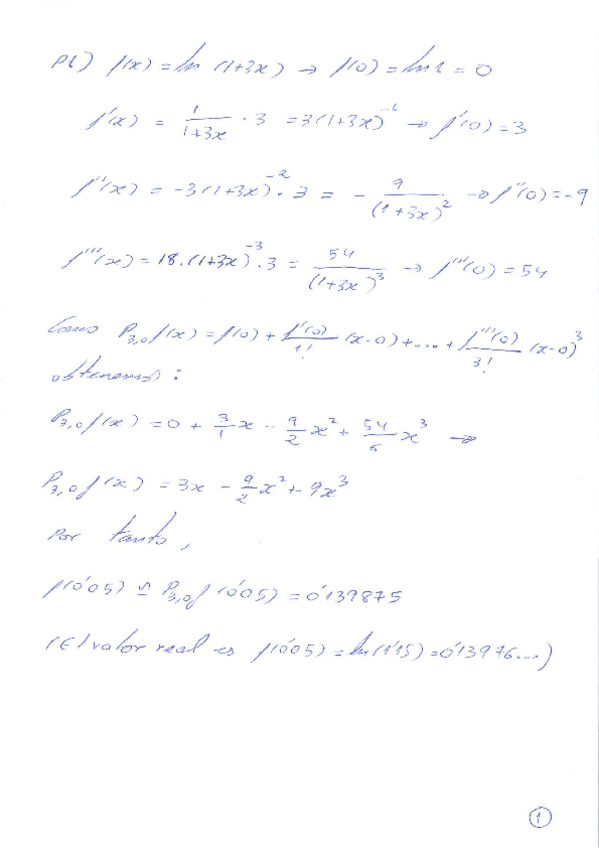 P1) f(x) = ln (1+3x) → f(0) = ln 1 = 0
f'(x) = 1/(1+3x) · 3 = 3(1+3x)^-1 → f'(0) = 3
f''(x) = -3(1+3x)^-2 · 3 = - 9/(1+3x)^2 → f''(0) = -9
f'''(x) = 18·(1+3x)^-3 · 3 = 54/(1+3x)^3 → f'''(0) = 54
Como P3,0 f(x) = f(0) + f'(0)/1! (x-0) + ... + f'''(0)/3! (x-0)^3
obtenemos:
P3,0 f(x) = 0 + 3/1 x - 9/2 x^2 + 54/6 x^3 →
P3,0 f(x) = 3x - 9/2 x^2 + 9x^3
Por tanto,
f(0'05) ≃ P3,0 f(0'05) = 0'139875
(El valor real es f(0'05) = ln(1'15) = 0'13976...)
1